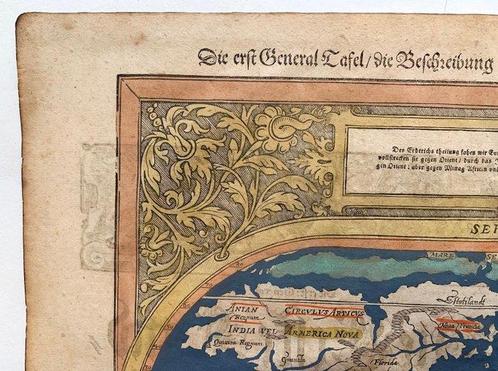 Die erst General Tafel / die Beschreibung
Des Erdtrichs theilung haben wir
vollstrecken sie gegen Orient / durch das
gen Orient: aber gegen Mittag Africam
SEP
MARE SE
ANIAN
Regnum
CIRCULUS ARTICUS
Estotilandt
INDIA VEL AMERICA NOVA
Noua Francia
Quiuira Regnum
Florida